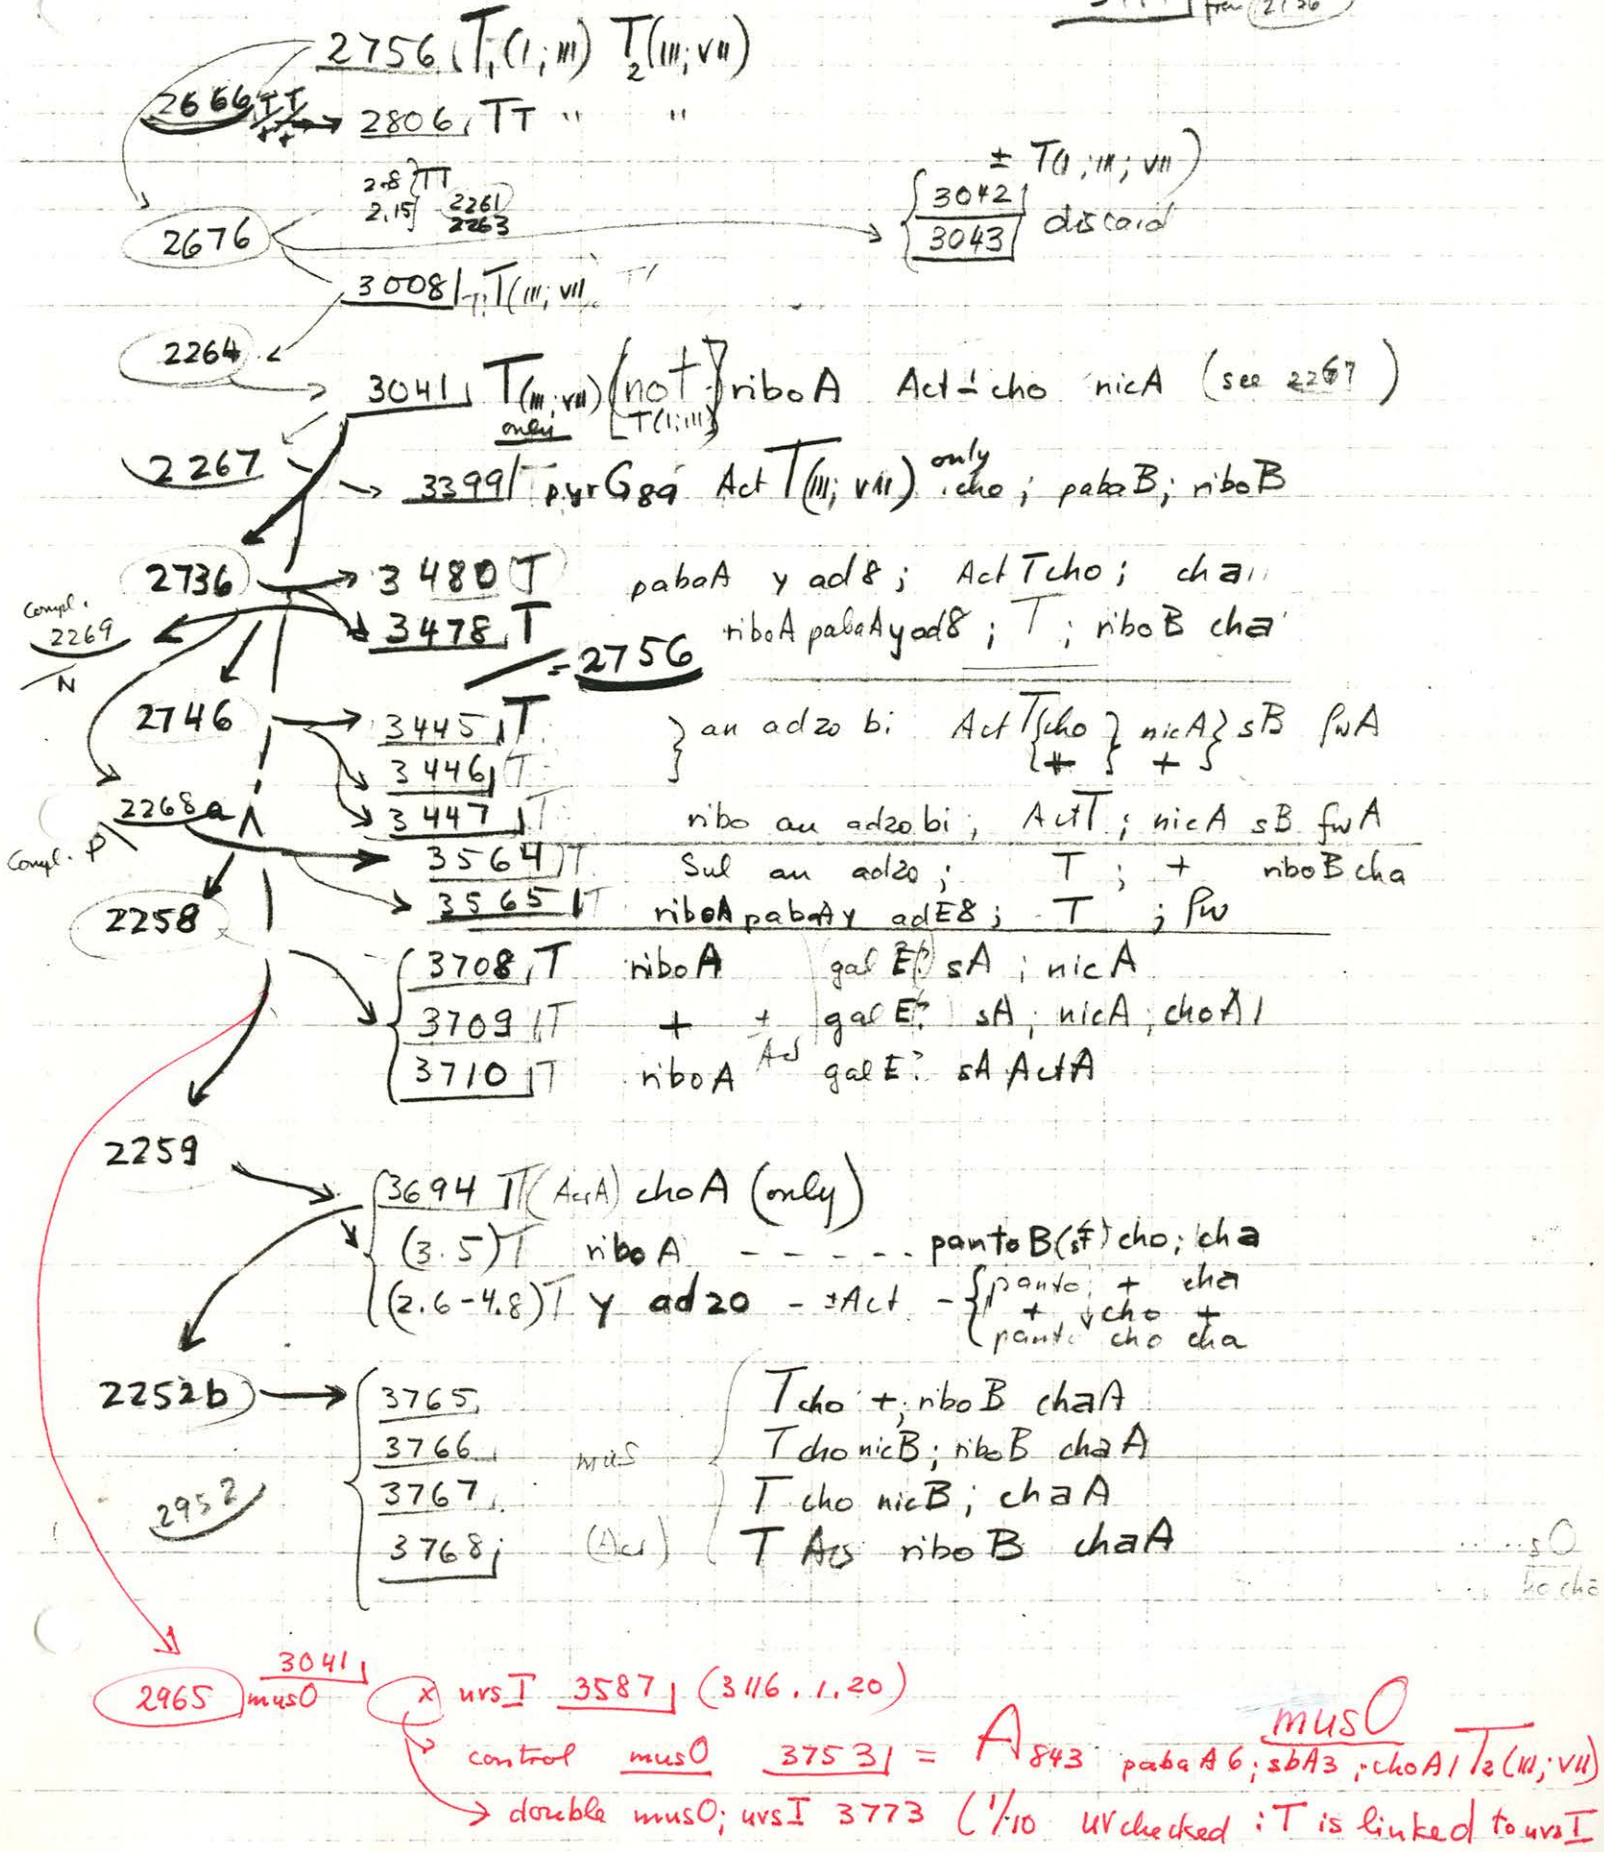 from 2736
2756 T1(I; III) T2(III; VII)
2666 TT → 2806 TT " "
± T(I; III; VII)
2.8 } TT
2.15 } 2261
2263
3042
3043 discard
2676
3008 T(III; VII)
2264
3041 T(III; VII) only [not T(I; III)] riboA Act ± cho nicA (see 2267)
2267 → 3399 T pyrG89 Act T(III; VII) only cho; pabaB; riboB
2736 → 3480 T pabaA y ad8; Act T cho; cha
Compl. 2269 N
3478 T riboA pabaA y ad8; T; riboB cha
= 2756
2746 → 3445 T } an ad20 bi Act T { cho } nicA } sB fwA
3446 T { + } +
2268a 3447 T ribo an ad20 bi; ActT; nicA sB fwA
Compl. P
3564 T Sul an ad20; T; + riboB cha
3565 T riboA pabaA y adE8; T; fw
2258
3708 T riboA galE? sA; nicA
3709 T + ± galE? sA; nicA; choA1
3710 T riboA galE? sA ActA
2259
3694 T (AcrA) choA (only)
(3.5) T riboA - - - - - pantoB(sf) cho; cha
(2.6-4.8) T y ad20 - ±Act - { panto; + cha
+ cho +
panto cho cha
2252b → 3765 T cho +; riboB chaA
3766 mus T cho nicB; riboB chaA
3767 T cho nicB; chaA
2952
3768 (Acr) T Acr riboB chaA
sO
cho
3041
2965 musO x uvsI 3587 (3116.1.20)
control musO 3753 = A843 musO pabaA6; sbA3; choA1 T2(III; VII)
→ double musO; uvsI 3773 (1/10 UV checked: T is linked to uvsI